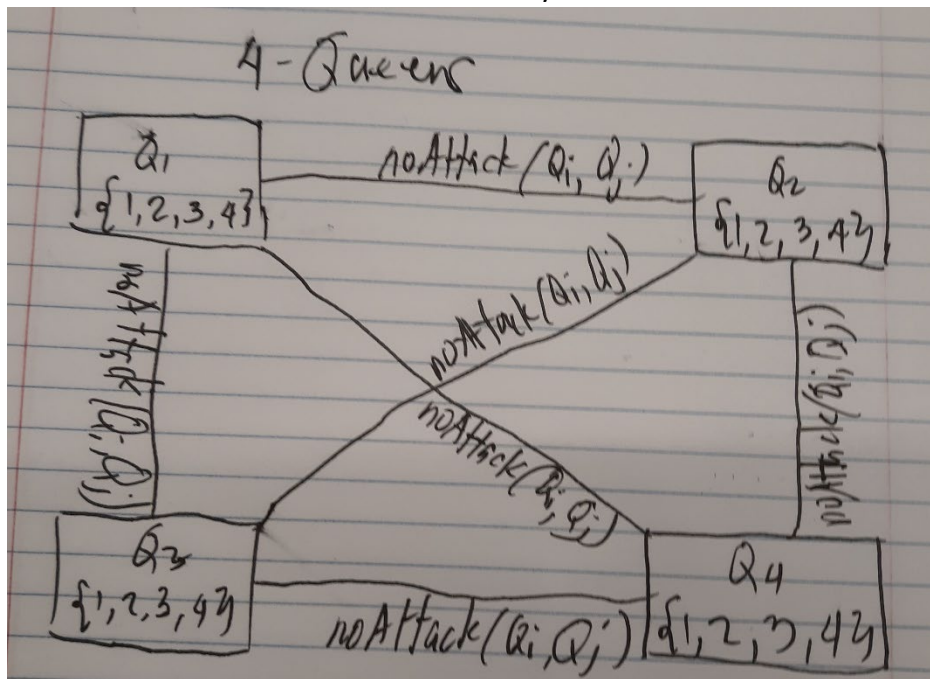 4-Queens
Q1
{1,2,3,4}
noAttack(Qi, Qj)
Q2
{1,2,3,4}
noAttack(Qi,Qj)
noAttack(Qi,Qj)
noAttack(Qi,Qj)
noAttack(Qi,Qj)
Q3
{1,2,3,4}
noAttack(Qi,Qj)
Q4
{1,2,3,4}